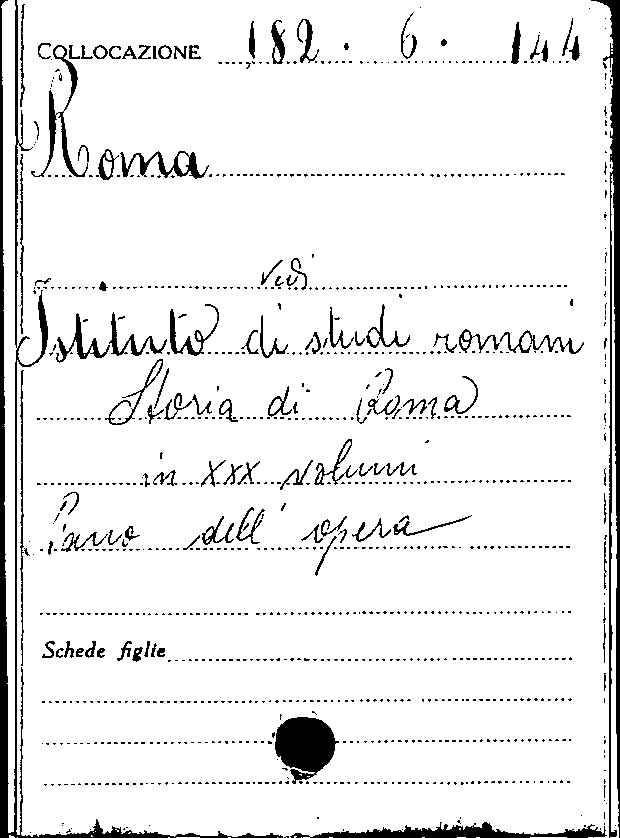 COLLOCAZIONE 182 . 6 . 144
Roma
vedi
Istituto di studi romani
Storia di Roma
in XXX volumi
Piano dell'opera
Schede figlie